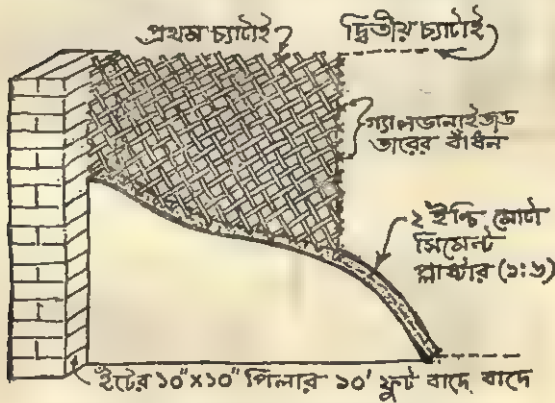 প্রথম চ্যাটাই
দ্বিতীয় চ্যাটাই
গ্যালভানাইজড
তারের বাঁধন
২ ইঞ্চি মোটা
সিমেন্ট
প্লাষ্টার (১:৬)
ইঁটের ১০"x১০" পিলার ১০' ফুট বাদে বাদে